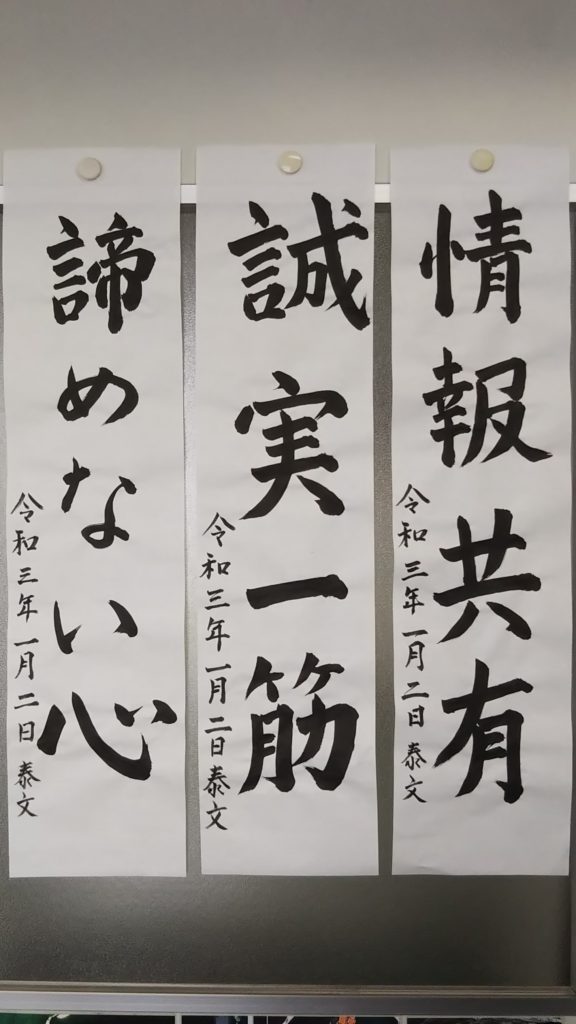 情報共有
令和三年一月二日 泰文
誠実一筋
令和三年一月二日 泰文
諦めない心
令和三年一月二日 泰文